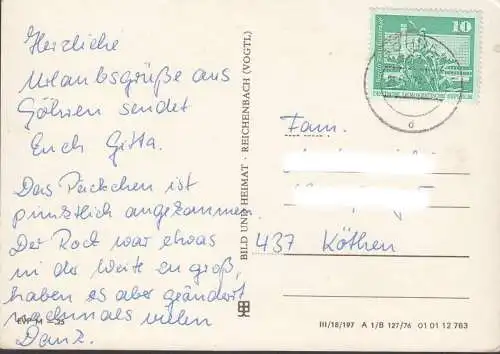 Herzliche
Urlaubsgrüße aus
Göhren sendet
Euch Gitta.
Das Päckchen ist
pünktlich angekommen.
Der Rock war etwas
in der Weite zu groß,
haben es aber geändert
nochmals vielen
Dank.
EVP M
BILD UND HEIMAT · REICHENBACH (VOGTL)
10
Fam.
437 Köthen
III/18/197 A 1/B 127/76 01 01 12 763